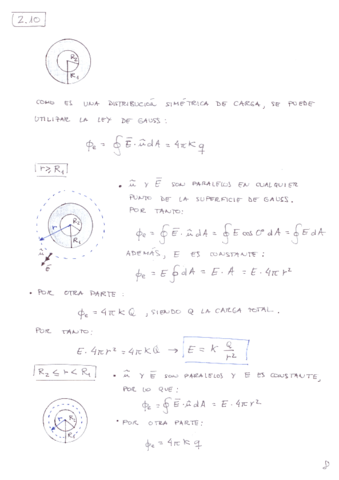 2.10
R₂
R₁
COMO ES UNA DISTRIBUCIÓN SIMÉTRICA DE CARGA, SE PUEDE
UTILIZAR LA LEY DE GAUSS:
ϕE = ∮ E⃗ · û dA = 4πKq
r ≥ R₁
• û Y E⃗ SON PARALELOS EN CUALQUIER
PUNTO DE LA SUPERFICIE DE GAUSS.
POR TANTO:
ϕE = ∮ E⃗ · û dA = ∮ E cos 0° dA = ∮ E dA
ADEMÁS, E ES CONSTANTE:
ϕE = E ∮ dA = E · A = E · 4πr²
r
R₂
R₁
E⃗
• POR OTRA PARTE:
ϕE = 4πKQ, SIENDO Q LA CARGA TOTAL.
POR TANTO:
E · 4πr² = 4πKQ → E = K Q/r²
R₂ ≤ r < R₁
• û Y E⃗ SON PARALELOS Y E ES CONSTANTE,
POR LO QUE:
ϕE = ∮ E⃗ · û dA = E · 4πr²
• POR OTRA PARTE:
ϕE = 4πKq
r
R₁